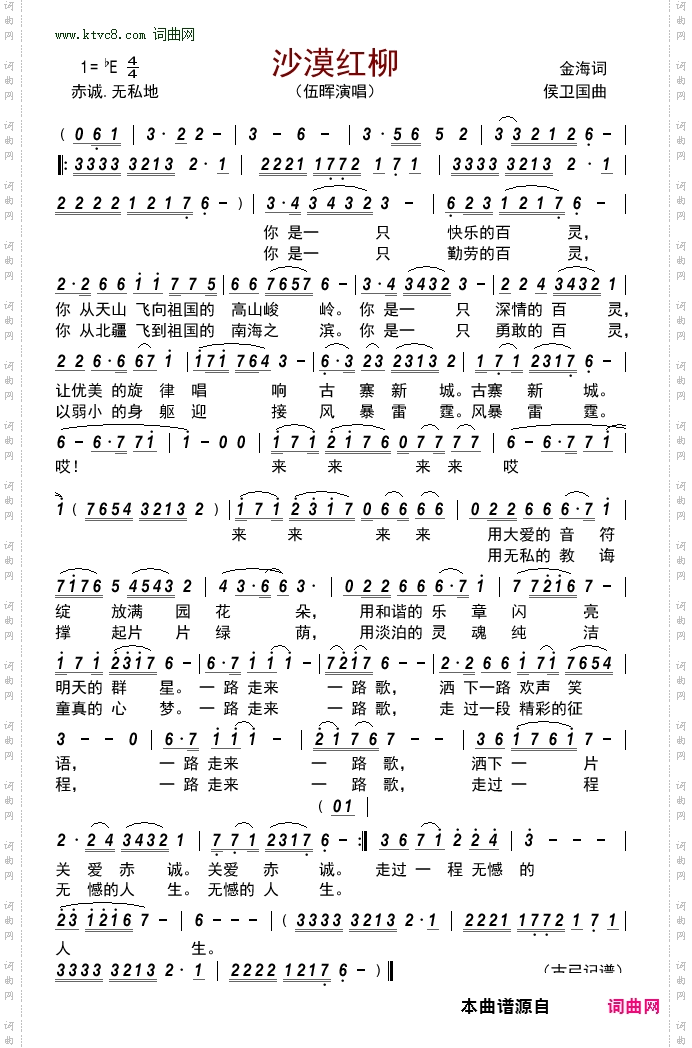 www.ktvc8.com 词曲网
沙漠红柳
1=♭E 4/4
金海词
赤诚.无私地
（伍晖演唱）
侯卫国曲
( 0 6 1 | 3 · 2 2 - | 3 - 6 - | 3 · 5 6 5 2 | 3 3 2 1 2 6 - |
‖: 3333 3213 2 · 1 | 2221 1772 1 7 1 | 3333 3213 2 · 1 |
2 2 2 2 1 2 1 7 6 - ) | 3 · 4 3 4 3 2 3 - | 6 2 3 1 2 1 7 6 - |
你 是一 只 快乐的百 灵，
你 是一 只 勤劳的百 灵，
2 · 2 6 6 1 1 7 7 5 | 6 6 7657 6 - | 3 · 4 3432 3 - | 2 2 4 3432 1 |
你 从天山 飞向祖国的 高山峻 岭。你 是一 只 深情的 百 灵，
你 从北疆 飞到祖国的 南海之 滨。你 是一 只 勇敢的 百 灵，
2 2 6 · 6 6 7 1 | 171 764 3 - | 6 · 3 23 2312 | 1 7 1 2317 6 - |
让优美 的旋 律 唱 响 古 寨 新 城。古寨 新 城。
以弱小 的身 躯 迎 接 风 暴 雷 霆。风暴 雷 霆。
6 - 6 · 7 7 1 | 1 - 0 0 | 1 7 1 2 1 7 6 0 7 7 7 7 | 6 - 6 · 7 7 1 |
哎！ 来 来 来 来 哎
1 ( 7654 3213 2 ) | 1 7 1 2 3 1 7 0 6 6 6 6 | 0 2 2 6 6 6 · 7 1 |
来 来 来 来 用大爱的 音 符
用无私的 教 诲
7176 5 4543 2 | 4 3 · 6 6 3 · | 0 2 2 6 6 6 · 7 1 | 7 7216 7 - |
绽 放满 园 花 朵， 用和谐的 乐 章 闪 亮
撑 起片 片 绿 荫， 用淡泊的 灵 魂 纯 洁
1 7 1 2317 6 - | 6 · 7 1 1 1 - | 7217 6 - | 2 · 2 6 6 1 71 7654 |
明天的 群 星。一 路 走来 一 路 歌， 洒 下一路 欢声 笑
童真的 心 梦。一 路 走来 一 路 歌， 走 过一段 精彩的 征
3 - - 0 | 6 · 7 1 1 1 - | 2 1 7 6 7 - | 3 6 1 7 6 1 7 - |
语， 一 路 走来 一 路 歌， 洒下 一 片
程， 一 路 走来 一 路 歌， 走过 一 程
( 0 1 |
2 · 2 4 3432 1 | 7 7 1 2317 6 - :‖ 3 6 7 1 2 2 4 | 3 - - - |
关 爱 赤 诚。关爱 赤 诚。 走过 一 程 无憾 的
无 憾的 人 生。无憾的 人 生。
23 1216 7 - | 6 - - - | ( 3333 3213 2 · 1 | 2221 1772 1 7 1 |
人 生。
3333 3213 2 · 1 | 2222 1217 6 - ) ‖
（古弓记谱）
本曲谱源自 词曲网
词曲网